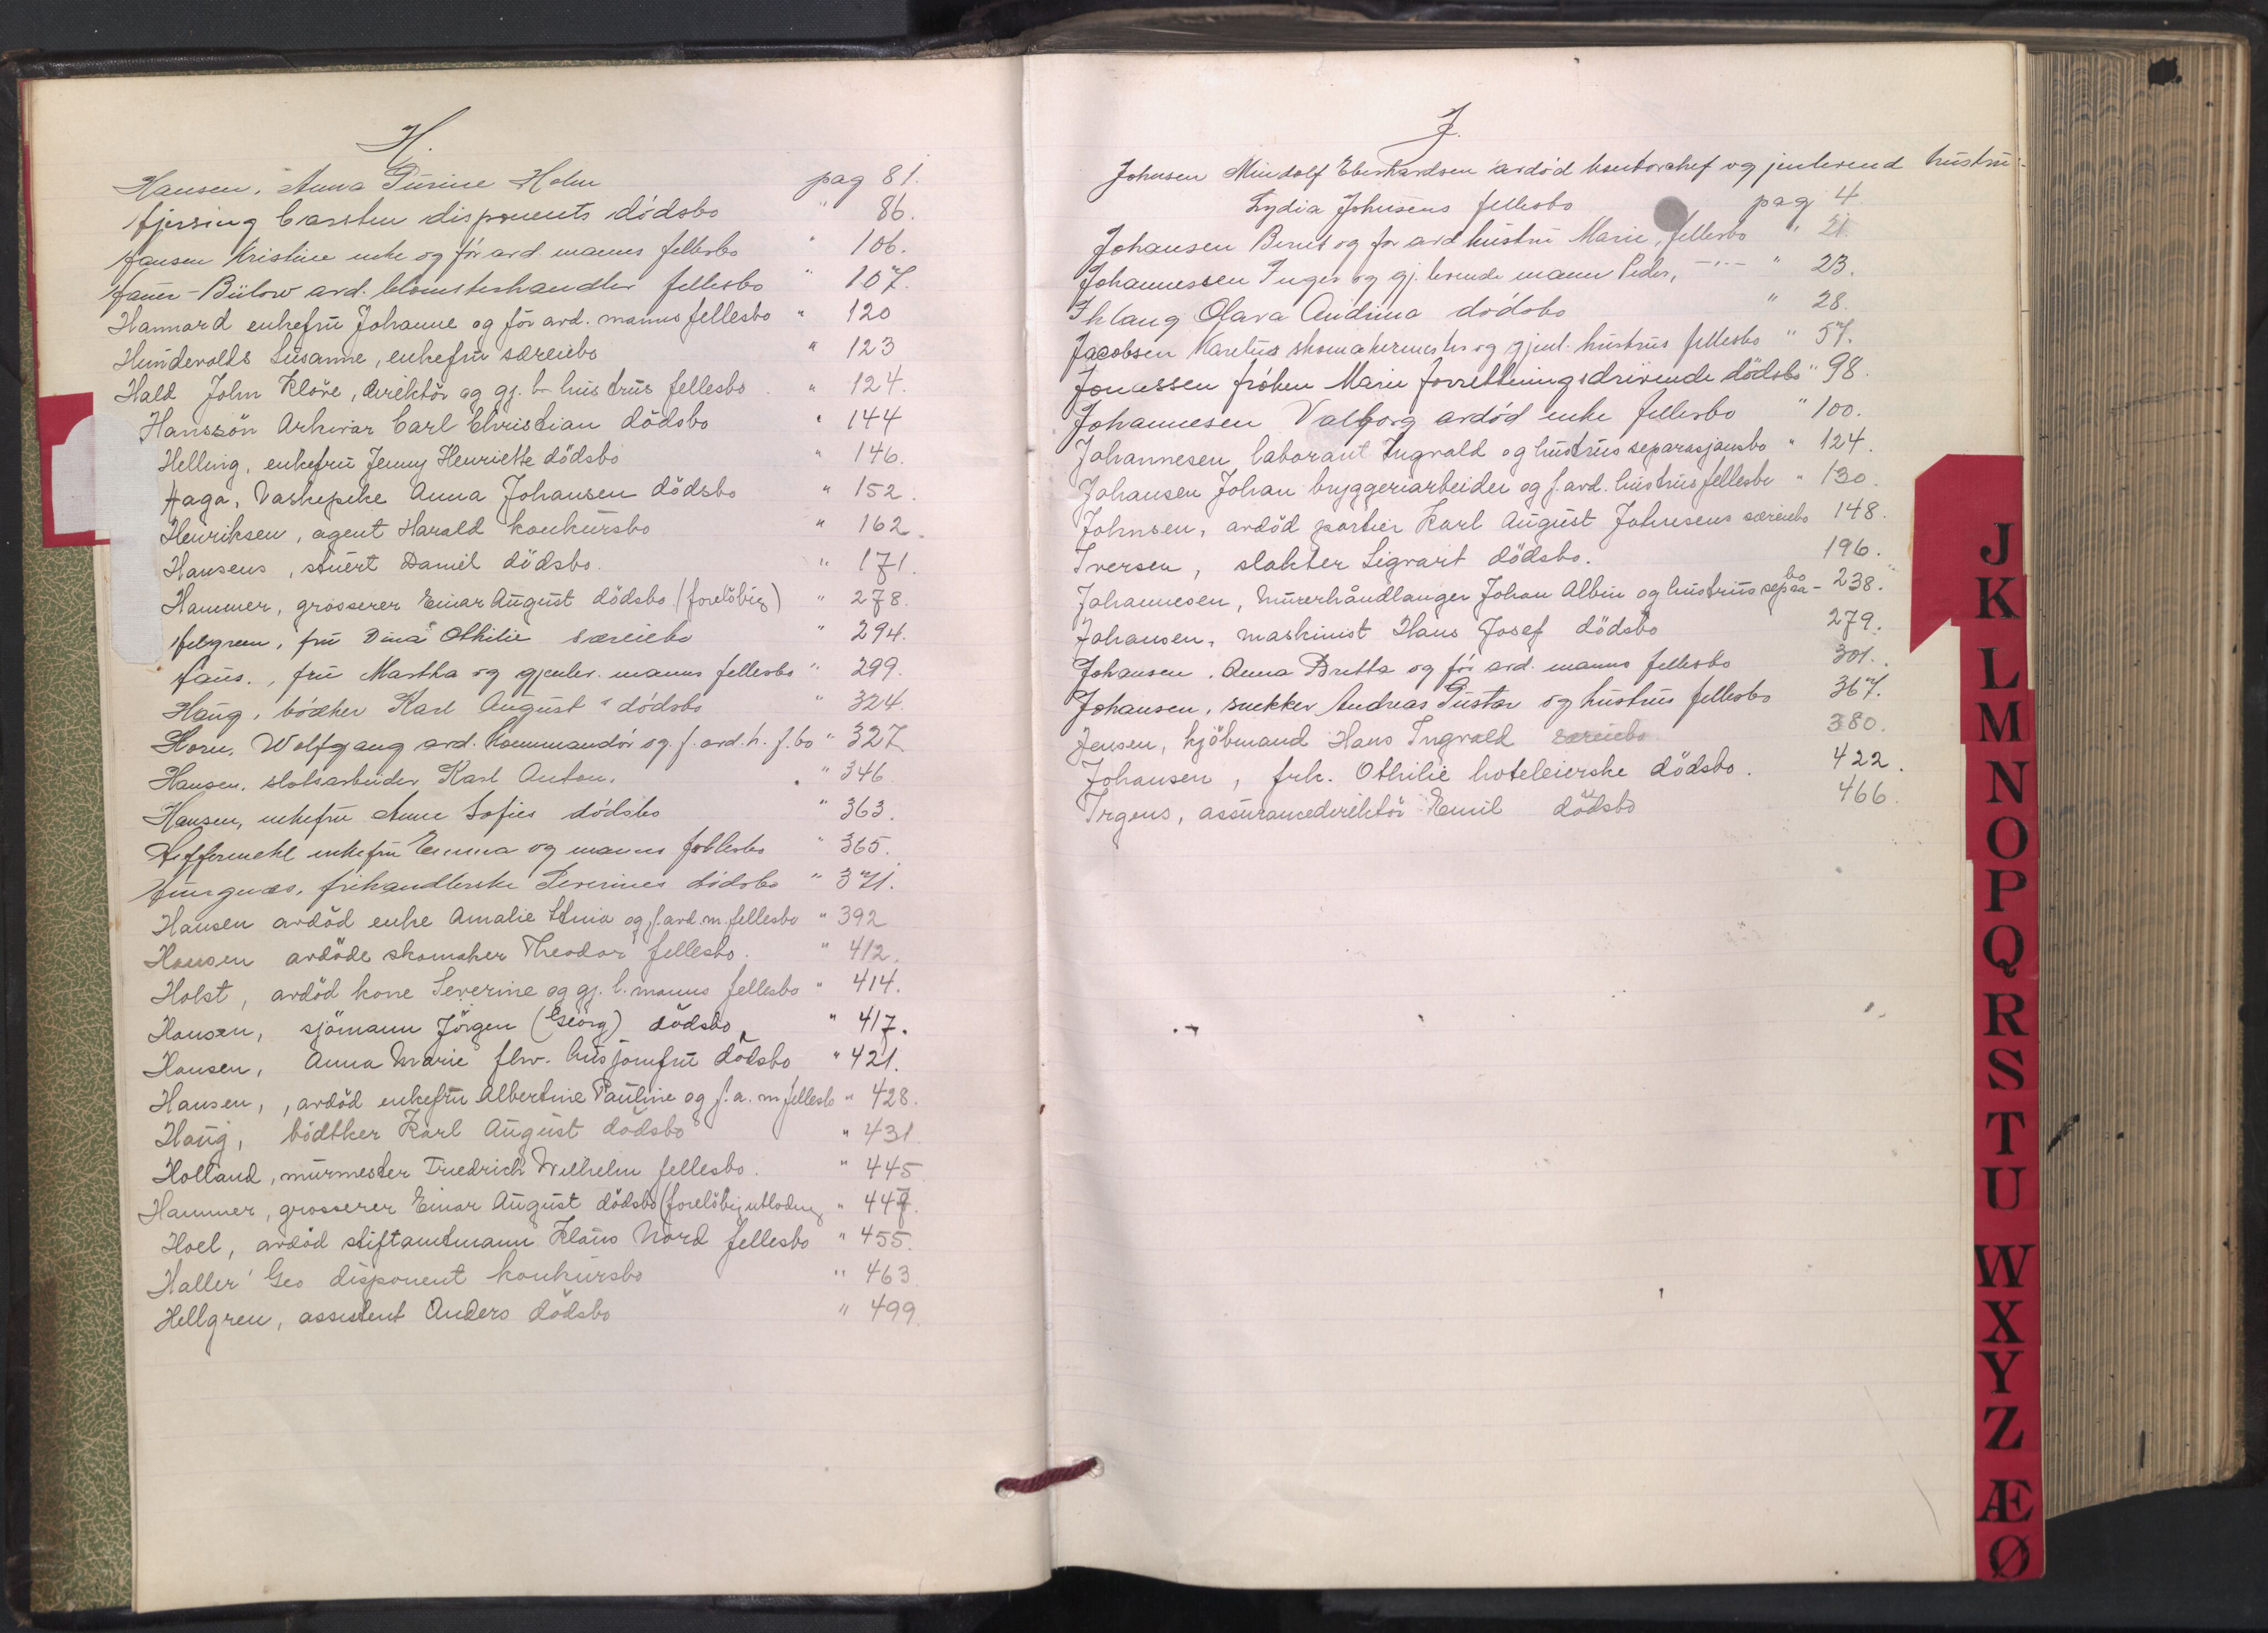 H.
Hansen, Anna Gurine Holm pag 81.
Hjersing Carsten disponents dödsbo " 86.
Hansen Kristine enke og før avd. manns fellesbo " 106.
Hauer-Bülow avd. blomsterhandler fellesbo " 107.
Hannard enkefru Johanne og för avd. manns fellesbo " 120
Hundevolds Susanne, enkefru særeiebo " 123
Hald John Klöre, direktör og gj. l. hustrus fellesbo " 124.
Hanssön Arkivar Carl Christian dödsbo " 144
Helling, enkefru Jenny Henriette dödsbo " 146.
Haga, Vaskepike Anna Johansen dödsbo " 152.
Henriksen, agent Harald konkursbo " 162.
Hansens, stuert Daniel dödsbo. " 171.
Hammer, grosserer Einar August dödsbo (forelöbig) " 278.
Helgreen, fru Dina Othilie særeiebo " 294.
Haus., fru Martha og gjenlev. manns fellesbo " 299.
Haug, bödker Karl August dödsbo " 324.
Horn, Wolfgang avd. Kommandör og f. avd. h. f.bo " 327
Hansen, slotsarbeider Karl Anton. " 346
Hansen, enkefru Anne Sofies dödsbo " 363.
Heffermehl enkefru Emma og manns fellesbo " 365.
Hungnæs, frihandlerske Severines dödsbo " 371.
Hansen avdöd enke Amalie Stnia og f. avd. m. fellesbo " 392
Hansen avdöde skomaker Theodor fellesbo. " 412.
Holst, avdöd kone Severine og gj. l. manns fellesbo " 414.
Hansen, sjömann Jörgen (Georg) dödsbo " 417.
Hansen, Anna Marie flw. husjomfru dödsbo " 421.
Hansen, , avdöd enkefru Albertine Pauline og f. a. m fellesb " 428.
Haug, bödtker Karl August dödsbo " 431.
Holland, murmester Friedrich Wilhelm fellesbo. " 445
Hammer, grosserer Einar August dödsbo (forelöbig utlodng " 447.
Hoel, avdöd stiftamtmann Klaus Nord fellesbo " 455.
Haller Geo disponent konkursbo " 463.
Hellgren, assistent Anders dödsbo " 499.
J.
Johnsen Mindolf Eberhardsen avdöd kontorchef og jenlevend hustru
Lydia Johnsens fellesbo pag 4.
Johansen Bernt og før avd hustru Marie, fellesbo " 21.
Johannessen Inger og gj. levende mann Peder, -"- " 23.
Ihlang Olava Andrina dödsbo " 28.
Jacobsen Karelius skomakermester og gjenl. hustrus fellesbo " 57.
Jonassen fröken Marie forretningsdrivende dödsbo " 98.
Johannesen Valborg avdöd enke fellesbo " 100.
Johannesen laborant Ingvald og hustrus separasjonsbo " 124.
Johansen Johan bryggeriarbeider og f. avd. hustrus fellesbo " 130.
Johnsen, avdöd portier Karl August Johnsens særeiebo 148.
Iversen, slakter Sigvart dödsbo. 196.
Johannesen, Murerhåndlanger Johan Albin og hustrus sepra- bo 238.
Johansen, maskinist Hans Josef dödsbo 279.
Johansen, Anna Britta og för avd. manns fellesbo 301.
Johansen, snekker Andreas Gustav og hustrus fellesbo 367.
Jensen, kjöbmand Hans Ingvald særeiebo 380.
Johansen, frk. Othilie hoteleierske dödsbo. 422.
Irgens, assurancedirektör Emil dödsbo 466.
J
K
L
M
N
O
P
Q
R
S
T
U
W
X
Y
Z
Æ
Ø